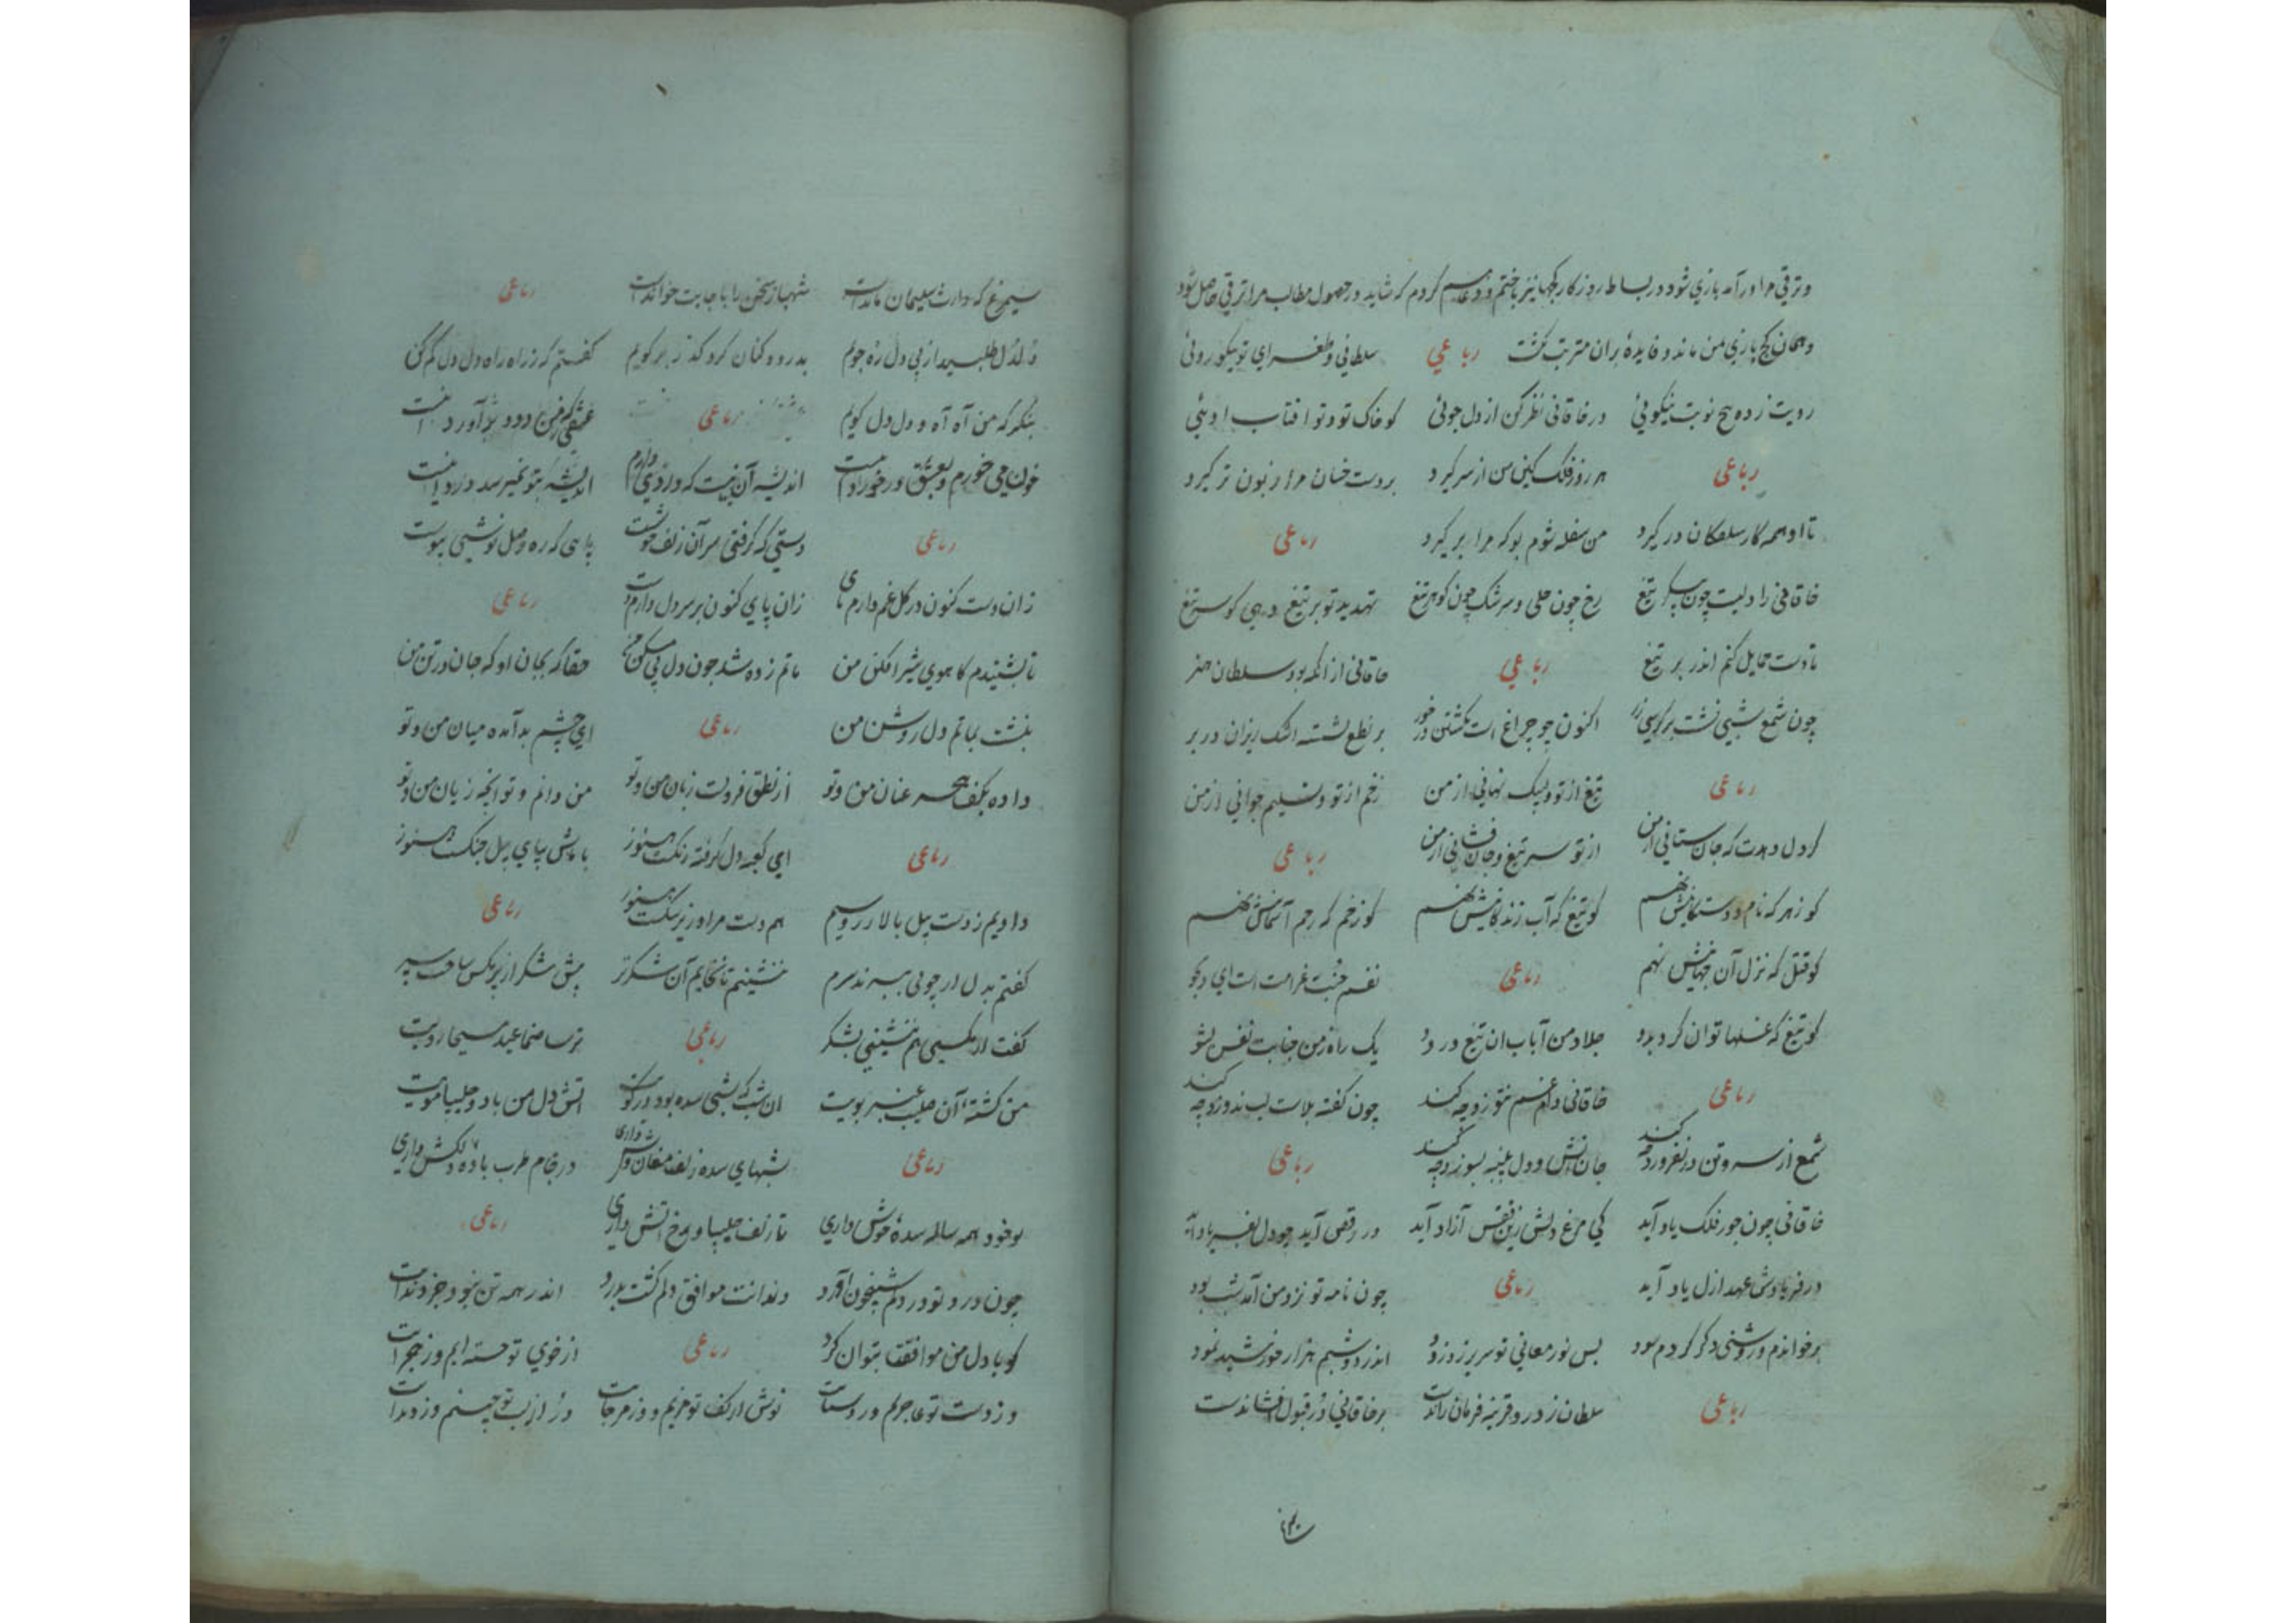 و ترقی مرا در آمد بازی شود در بساط روزگار کجها نیز باختم و دغا هم کردم که شاید در حصول مطالب مرا ترقی حاصل شود
و همان کج بازی من ماند و فایدهٔ بران مترتب نکشت رباعی سلطانی و طغرای تو نیکو روئی
رویت زده پنج نوبت نیکوئی در خاقانی نظر کن از دل جوئی کو خاک تو و تو افتاب اوئی
رباعی هر روز فلک کین من از سر کیرد بر دست خسان مرا زبون تر کیرد
تا او همه کار سفلکان در کیرد من سفله شوم بو که مرا بر کیرد رباعی
خاقانی را دلیست چون پیکر تیغ رخ چون حلی و سرشک چون کوهر تیغ تهدید تو بر تیغ دهی کو سر تیغ
تا دست حمایل کنم اندر بر تیغ رباعی خاقانی از انکه بود سلطان هنر
چون شمع شبی نشست بر کرسی زر اکنون چو چراغ است بکشتن در خور بر نطع نشسته اشک ریزان در بر
رباعی تیغ از تو و لبیک نهانی از من زخم از تو و تسلیم جوانی از من
کر دل دهدت که جان ستانی از من از تو سر تیغ و جان فشانی از من رباعی
کو زهر که نام دوستکانیش نهم کو تیغ که آب زندکانیش نهم کو زخم که رحم آسمانیش نهم
کو قتل که نزل آن جهانیش نهم رباعی نفسم جنب غرامت است ای دلجو
کو تیغ که غسلها توان کرد بدو جلاد من آب ان تیغ در دو یک راه ز من جنابت نفس بشو
رباعی خاقانی دام غم نتوزد چه کند چون کفته بلاست لب ندوزد چه کند
شمع از سر و تن در نفروزد چه کند جان آتش و دل پنبه بسوزد چه کند رباعی
خاقانی چون جور فلک یاد آید کی مرغ دلش زین قفس آزاد آید در رقص آید چو دل بفریاد آید
در فریادش عهد ازل یاد آید رباعی چون نامه تو نزد من آمد شب بود
برخواندم و زو شبی دکر کردم سود پس نور معانی تو سر بر زد زود اندر دو شبم هزار خورشید نمود
رباعی سلطان ز در قرینه فرمان راندست بر خاقانی در قبول افشاندست
سیمرغ که وارث سلیمان ماندست شهباز سخن را باجابت خواندست رباعی
دلدل طلبید از پی دل ره جویم بدرود کنان کرد کذر بر کویم کفتم کز راه راه دل دل کم کن
بنکر که من آه آه و دل دل کویم رباعی
خون می خورم و بعشق در خورد منست اندیشه آن نیست که دردی دارم اندیشه بتو نمیرسد درد منست
رباعی دستی که کرفتی سر آن زلف چو شست پایی که ره وصل نوشتی پیوست
زان دست کنون در کل غم دارم پای زان پای کنون بر سر دل دارم دست رباعی
تا بشنیدم کاهوی شیر افکن من ماتم زده شد چون دل بی مسکن من حقا که بجان او که جان در تن من
بنشست بماتم دل روشن من رباعی ای چشم بد آمده میان من و تو
داده بکف هجر عنان من و تو از نطق فروبست زبان من و تو من دانم و تو انچه ز یان من و تو
رباعی ای کعبه دل کرفته زنکت هنوز با مش بپای پیل جنکست هنوز
دادیم ز دست پیل بالا زر و سیم هم دست مرا در زیر سنکست هنوز رباعی
کفتم بدل ار چو نی ببرند سرم ننشینم تا نخایم آن شکر تر پیش شکر از پر مکس ساخت سپر
کفت ار مکسی هم ننشینی بشکر رباعی ترسا صنما عید مسیحا رویت
من کشته آن صلیب عنبر بویت ان شب که شب سده بود در کویت اتش دل من باد و چلیپا مویت
رباعی شبهای سده زلف مغان وش داری در جام طرب باده دلکش داری
تو خود همه ساله سدهٔ خوش داری تا زلف چلیپا و رخ اتش داری رباعی
چون درد تو بر دلم شبیخون آورد دندانت موافق دلم کشت بدرد اندر همه تن نبود جز دندانت
کو با دل من موافقت بتوان کرد رباعی از خوی تو خسته ایم و ز هجرانت
و ز دست تو عاجزیم و ز دستانت نوش از کف تو مزیم و ز مرجانت در از لب تو چنیم و ز دندانت